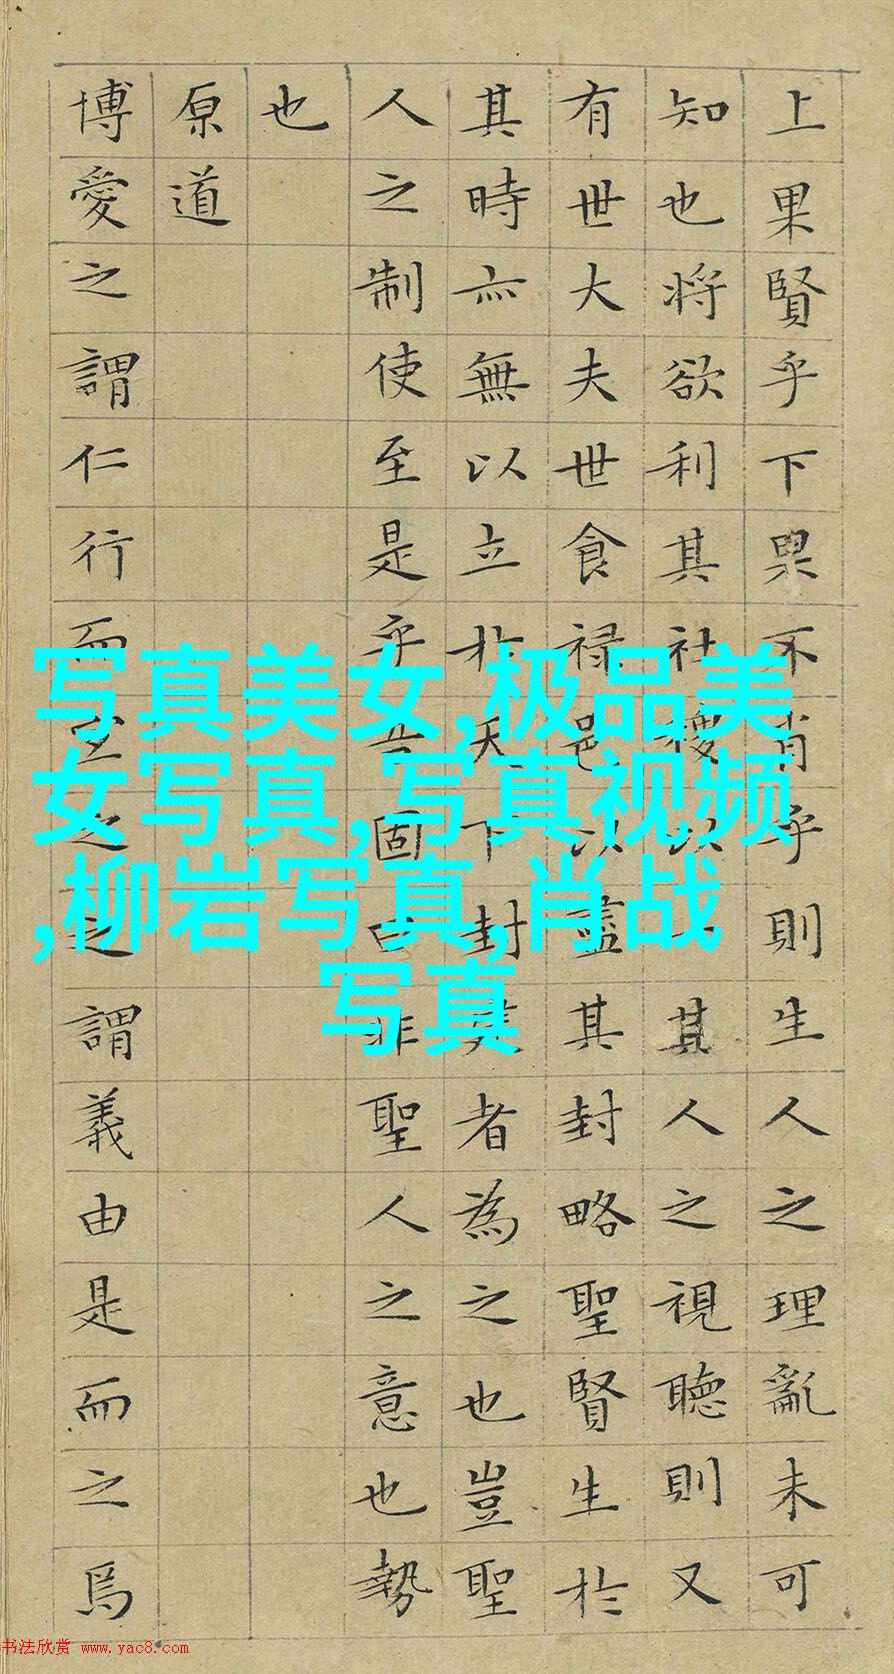 上果賢乎下果不肖乎則生人之理亂未可
知也將欲利其社稷以一其人之視聽則又
有世大夫世食禄邑以盡其封略聖賢生於
其時亦無以立於天下封其者為之也豈聖
人之制使至是乎吾固曰非聖人之意也勢
也
原道
博愛之謂仁行而宜之之謂義由是而之焉
写真美女,极品美
女写真,写真视频
,柳岩写真,肖战
写真
书法欣赏 www.yac8.com